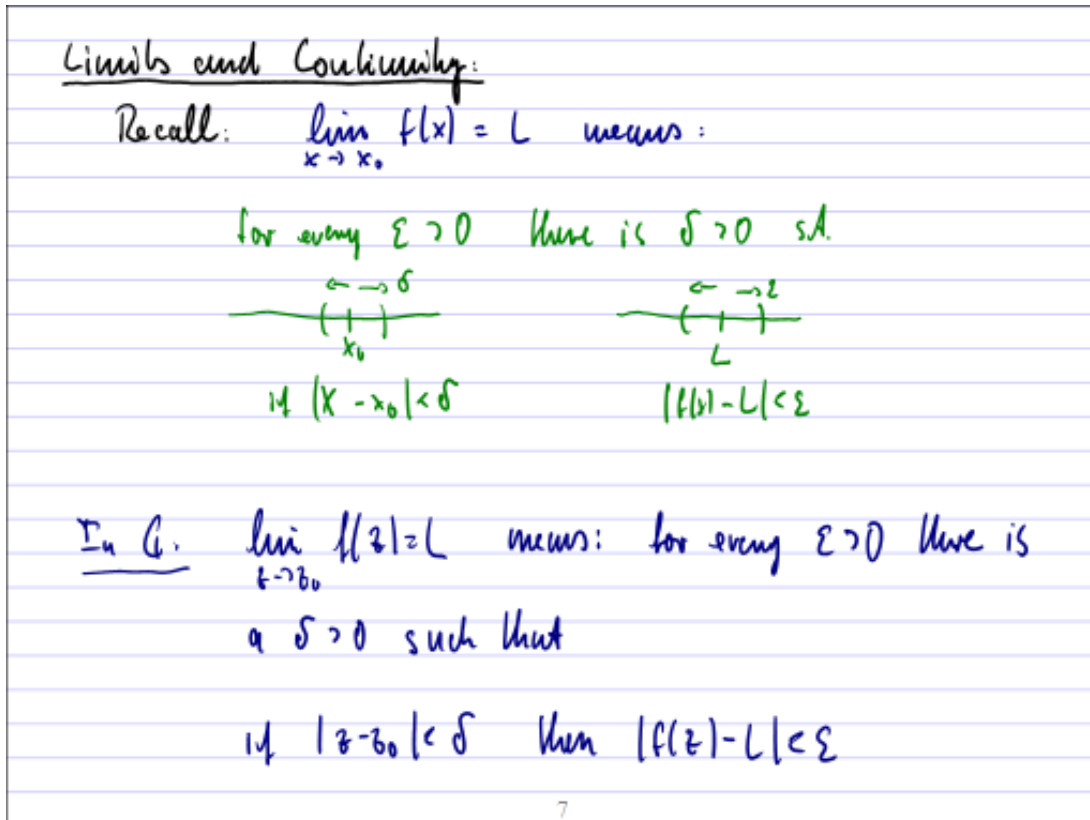 Limits and Continuity:
Recall: lim f(x) = L means:
x → x₀
for every ε > 0 there is δ > 0 s.t.
← → δ ← → ε
( | ) ( | )
x₀ L
if |x - x₀| < δ |f(x) - L| < ε
In ℂ. lim f(z) = L means: for every ε > 0 there is
z → z₀
a δ > 0 such that
if |z - z₀| < δ then |f(z) - L| < ε
7